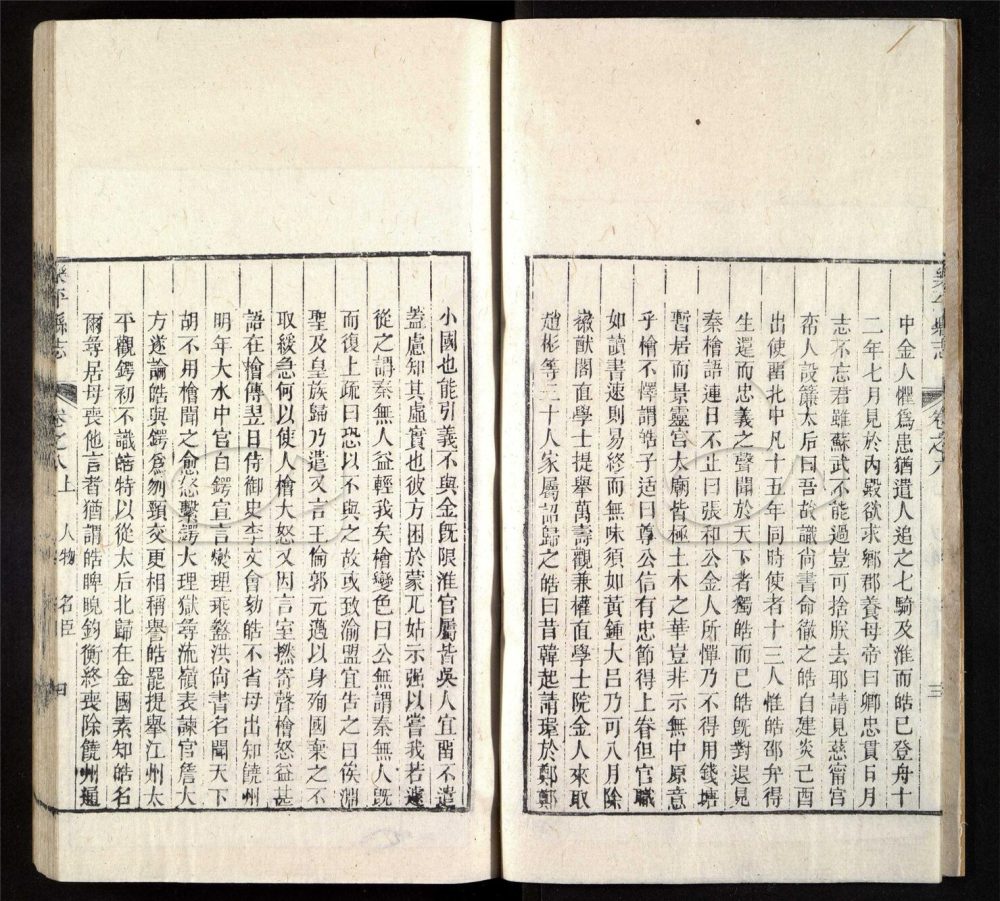 樂平縣志
卷之八
三
中金人懼爲患猶遣人追之七騎及淮而皓已登舟十
二年七月見於內殿欲求鄉郡養母帝曰卿忠貫日月
志不忘君雖蘇武不能過豈可捨朕去耶請見慈甯宮
帘人設簾太后曰吾故識尚書命徹之皓自建炎己酉
出使囿北中凡十五年同時使者十三人惟皓邵弁得
生還而忠義之聲聞於天下者獨皓而已皓旣對退見
秦檜語連日不止曰張和公金人所憚乃不得用錢塘
暫居而景靈宮太廟皆極土木之華豈非示無中原意
乎檜不懌謂皓子适曰尊公信有忠節得上眷但官職
如讀書速則易終而無味須如黃鍾大呂乃可八月除
徽猷閣直學士提舉萬壽觀兼權直學士院金人來取
趙彬等三十人家屬詔歸之皓曰昔韓起請環於鄭鄭
小國也能引義不與金旣限淮官屬皆吳人宜留不遣
蓋慮知其虛實也彼方困於蒙兀姑示强以嘗我若遽
從之謂秦無人益輕我矣檜變色曰公無謂秦無人旣
而復上疏曰恐以不與之故或致渝盟宜告之曰俟淵
聖及皇族歸乃遣又言王倫郭元邁以身殉國棄之不
取緩急何以使人檜大怒又因言室撚寄聲檜怒益甚
語在檜傳翌日侍御史李文會劾皓不省母出知饒州
明年大水中官白鍔宣言燮理乖盭洪尚書名聞天下
胡不用檜聞之愈怒繫鍔大理獄尋流嶺表諫官詹大
方遂論皓與鍔爲刎頸交更相稱譽皓罷提舉江州太
平觀鍔初不識皓特以從太后北歸在金國素知皓名
爾尋居母喪他言者猶謂皓睥睨鈞衡終喪除饒州通
樂平縣志
卷之八上
人物
名臣
四